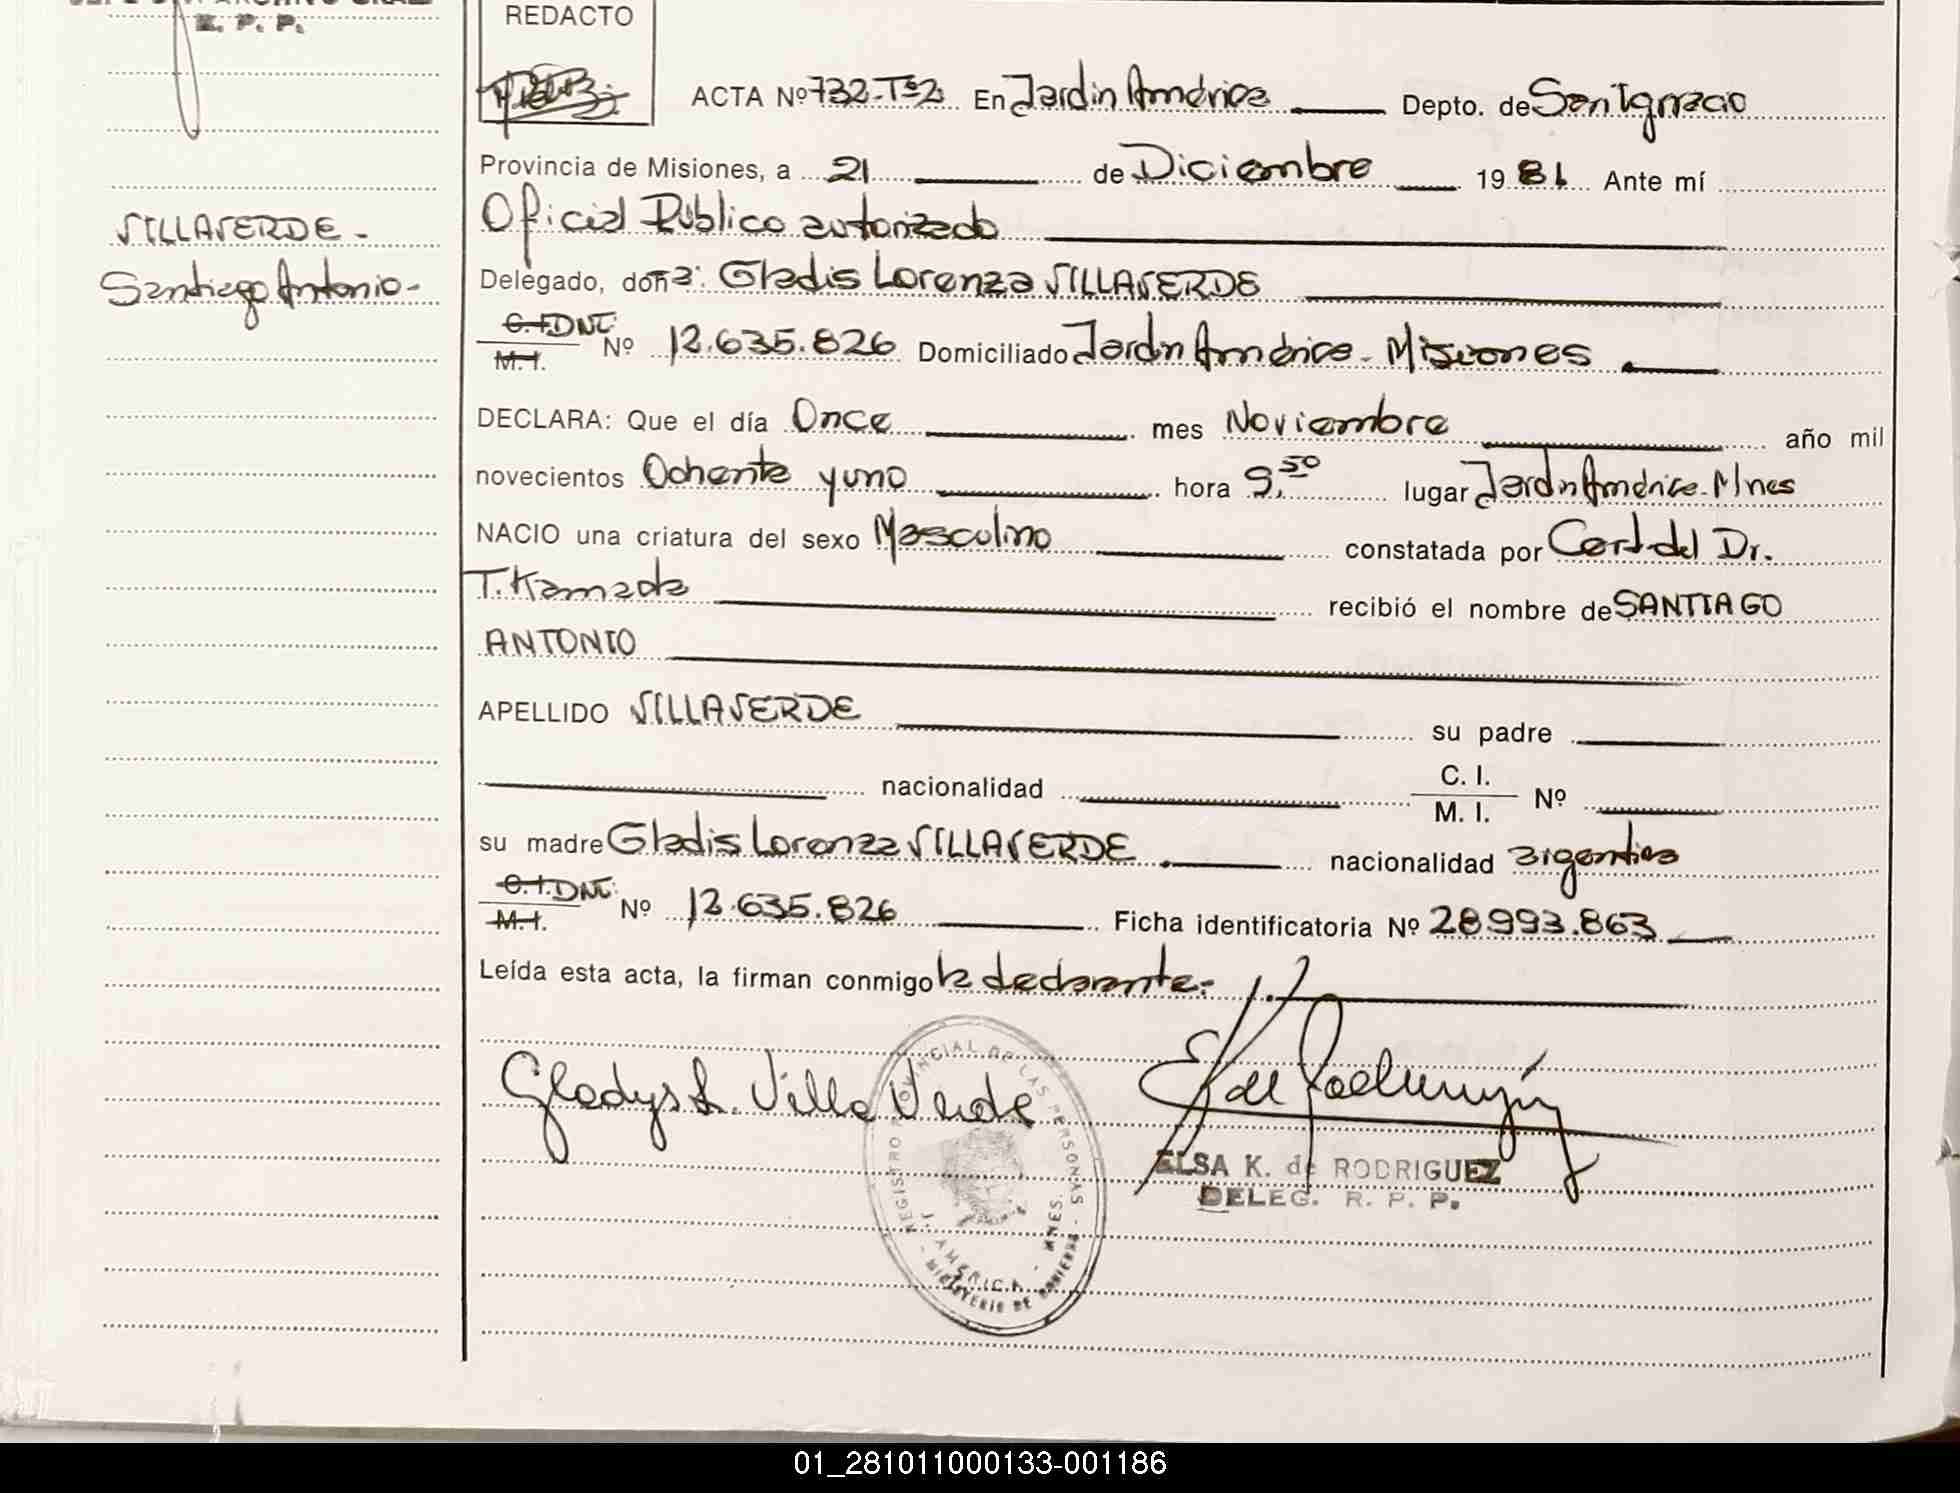 E. P. P.
REDACTO
ACTA Nº 732-Tº2 En Jardin América Depto. de San Ignacio
Provincia de Misiones, a 21 de Diciembre 1981 Ante mí
Oficial Público autorizado
VILLAVERDE -
Delegado, doña: Gladis Lorenza VILLAVERDE
Santiago Antonio-
C.I. DNI: M.I. Nº 12.635.826 Domiciliado Jardin América - Misiones
DECLARA: Que el día Once mes Noviembre año mil
novecientos Ochenta y uno hora 9,50 lugar Jardin América-Mnes
NACIO una criatura del sexo Masculino constatada por Cert. del Dr.
T. Kamada recibió el nombre de SANTIAGO
ANTONIO
APELLIDO VILLAVERDE su padre
nacionalidad C. I. M. I. Nº
su madre Gladis Lorenza VILLAVERDE nacionalidad argentina
C.I. DNI: M.I. Nº 12.635.826 Ficha identificatoria Nº 28993.863
Leída esta acta, la firman conmigo la declarante.-
Gladys L. Villa Verde
REGISTRO PROVINCIAL DE LAS PERSONAS
J. AMERICA - MNES.
- MINISTERIO DE GOBIERNO -
ELSA K. de RODRIGUEZ
DELEG. R. P. P.
01_281011000133-001186